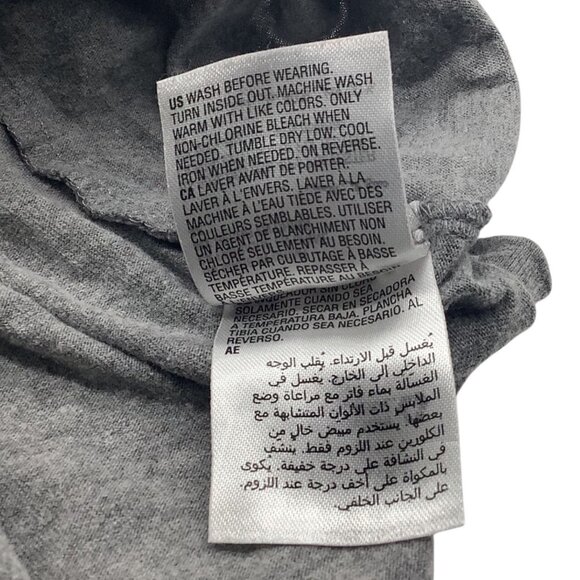 US WASH BEFORE WEARING.
TURN INSIDE OUT. MACHINE WASH
WARM WITH LIKE COLORS. ONLY
NON-CHLORINE BLEACH WHEN
NEEDED. TUMBLE DRY LOW. COOL
IRON WHEN NEEDED. ON REVERSE.
CA LAVER AVANT DE PORTER.
LAVER À L'ENVERS. LAVER À LA
MACHINE À L'EAU TIÈDE AVEC DES
COULEURS SEMBLABLES. UTILISER
UN AGENT DE BLANCHIMENT NON
CHLORÉ SEULEMENT AU BESOIN.
SÉCHER PAR CULBUTAGE À BASSE
TEMPÉRATURE. REPASSER À
BASSE TEMPÉRATURE AU BESOIN
SOLAMENTE CUANDO SEA
NECESARIO. SECAR EN SECADORA
A TEMPERATURA BAJA. PLANCHA
TIBIA CUANDO SEA NECESARIO. AL
REVERSO.
AE
يُغسل قبل الارتداء. يُقلب الوجه
الداخلي إلى الخارج. يُغسل في
الغسالة بماء فاتر مع مراعاة وضع
الملابس ذات الألوان المتشابهة مع
بعضها. يستخدم مبيض خال من
الكلورين عند اللزوم فقط. ينشف
في النشافة على درجة خفيفة. يُكوى
بالمكواة على أخف درجة عند اللزوم.
على الجانب الخلفي.